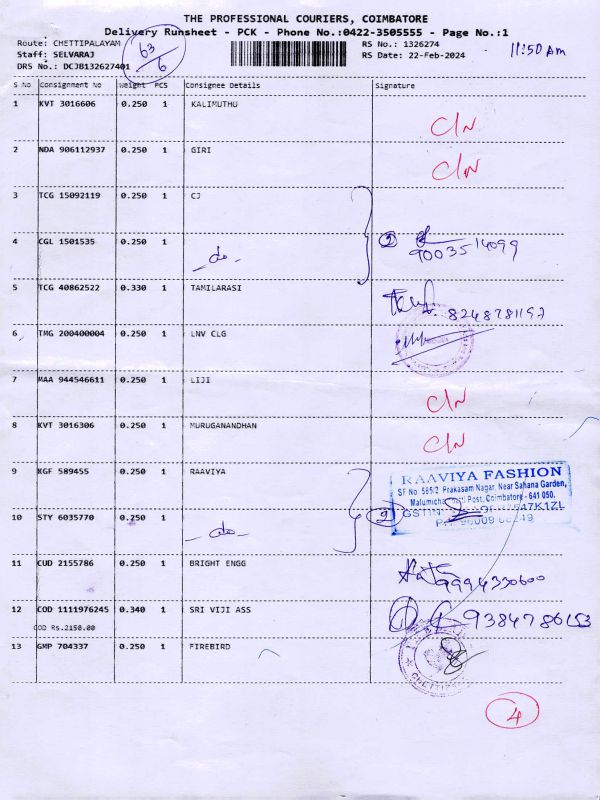 THE PROFESSIONAL COURIERS, COIMBATORE
Delivery Runsheet - PCK - Phone No.:0422-3505555 - Page No.:1
Route: CHETTIPALAYAM RS No.: 1326274
Staff: SELVARAJ RS Date: 22-Feb-2024
DRS No.: DCJB132627401
63/6
11:50 Am
S No Consignment No Weight PCS Consignee Details Signature
1 KVT 3016606 0.250 1 KALIMUTHU C/N
2 NDA 906112937 0.250 1 GIRI C/N
3 TCG 15092119 0.250 1 CJ
4 CGL 1501535 0.250 1 - do - 2 9003514099
5 TCG 40862522 0.330 1 TAMILARASI 8248781197
6 TMG 200400004 0.250 1 LNV CLG
7 MAA 944546611 0.250 1 LIJI C/N
8 KVT 3016306 0.250 1 MURUGANANDHAN C/N
9 KGF 589455 0.250 1 RAAVIYA
RAAVIYA FASHION
SF No: 565/2 Prakasam Nagar, Near Sahana Garden,
Malumicha Post, Coimbatore - 641 050.
GSTIN:
10 STY 6035770 0.250 1 - do - 2
11 CUD 2155786 0.250 1 BRIGHT ENGG 9994330600
12 COD 1111976245 0.340 1 SRI VIJI ASS 1 9384786153
COD Rs.2150.00
13 GMP 704337 0.250 1 FIREBIRD
4